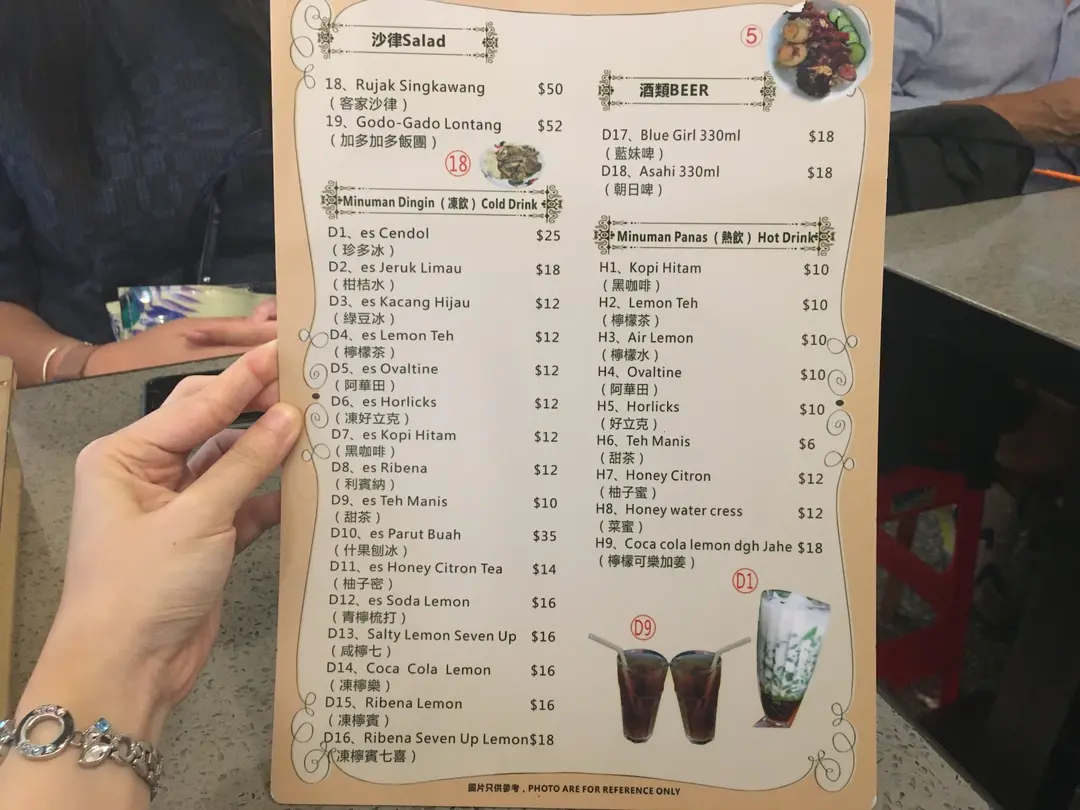 沙律Salad
18、Rujak Singkawang $50
（客家沙律）
19、Godo-Gado Lontang $52
（加多加多飯團）
18
Minuman Dingin（凍飲）Cold Drink
D1、es Cendol $25
（珍多冰）
D2、es Jeruk Limau $18
（柑桔水）
D3、es Kacang Hijau $12
（綠豆冰）
D4、es Lemon Teh $12
（檸檬茶）
D5、es Ovaltine $12
（阿華田）
D6、es Horlicks $12
（凍好立克）
D7、es Kopi Hitam $12
（黑咖啡）
D8、es Ribena $12
（利賓納）
D9、es Teh Manis $10
（甜茶）
D10、es Parut Buah $35
（什果刨冰）
D11、es Honey Citron Tea $14
（柚子密）
D12、es Soda Lemon $16
（青檸梳打）
D13、Salty Lemon Seven Up $16
（咸檸七）
D14、Coca Cola Lemon $16
（凍檸樂）
D15、Ribena Lemon $16
（凍檸賓）
D16、Ribena Seven Up Lemon $18
（凍檸賓七喜）
5
酒類BEER
D17、Blue Girl 330ml $18
（藍妹啤）
D18、Asahi 330ml $18
（朝日啤）
Minuman Panas（熱飲）Hot Drink
H1、Kopi Hitam $10
（黑咖啡）
H2、Lemon Teh $10
（檸檬茶）
H3、Air Lemon $10
（檸檬水）
H4、Ovaltine $10
（阿華田）
H5、Horlicks $10
（好立克）
H6、Teh Manis $6
（甜茶）
H7、Honey Citron $12
（柚子蜜）
H8、Honey water cress $12
（菜蜜）
H9、Coca cola lemon dgh Jahe $18
（檸檬可樂加姜）
D1
D9
圖片只供參考，PHOTO ARE FOR REFERENCE ONLY